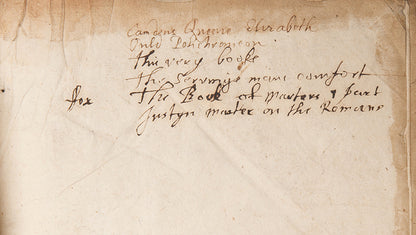 Camdens Queene Elizabeth
Ould Polichronicon
this very booke
The servinge mans comfort
fox The Book of Marters 1 part
Justyn marter on the Romans